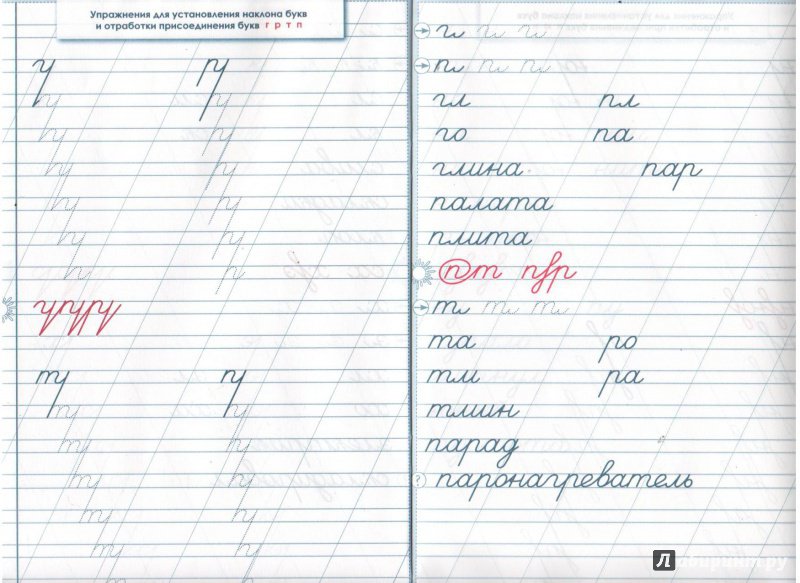 Упражнения для установления наклона букв
и отработки присоединения букв г р т п
г г г
п п п
гл пл
го па
глина пар
палата
плита
пт пр
т т т
та ро
тм ра
тмин
парад
? паронагреватель
Лабиринт.ру